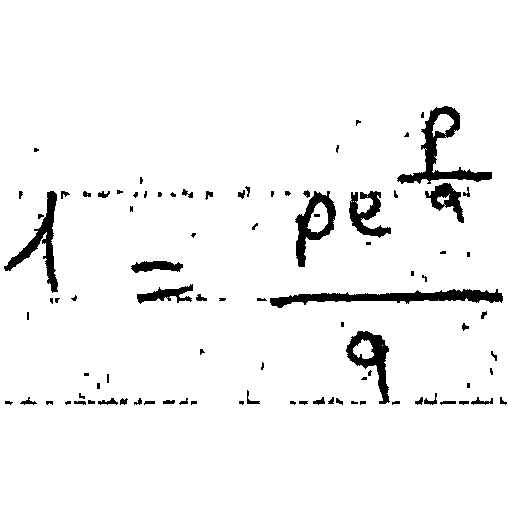 $1 = \frac{p e^{\frac{p}{q}}}{q}$